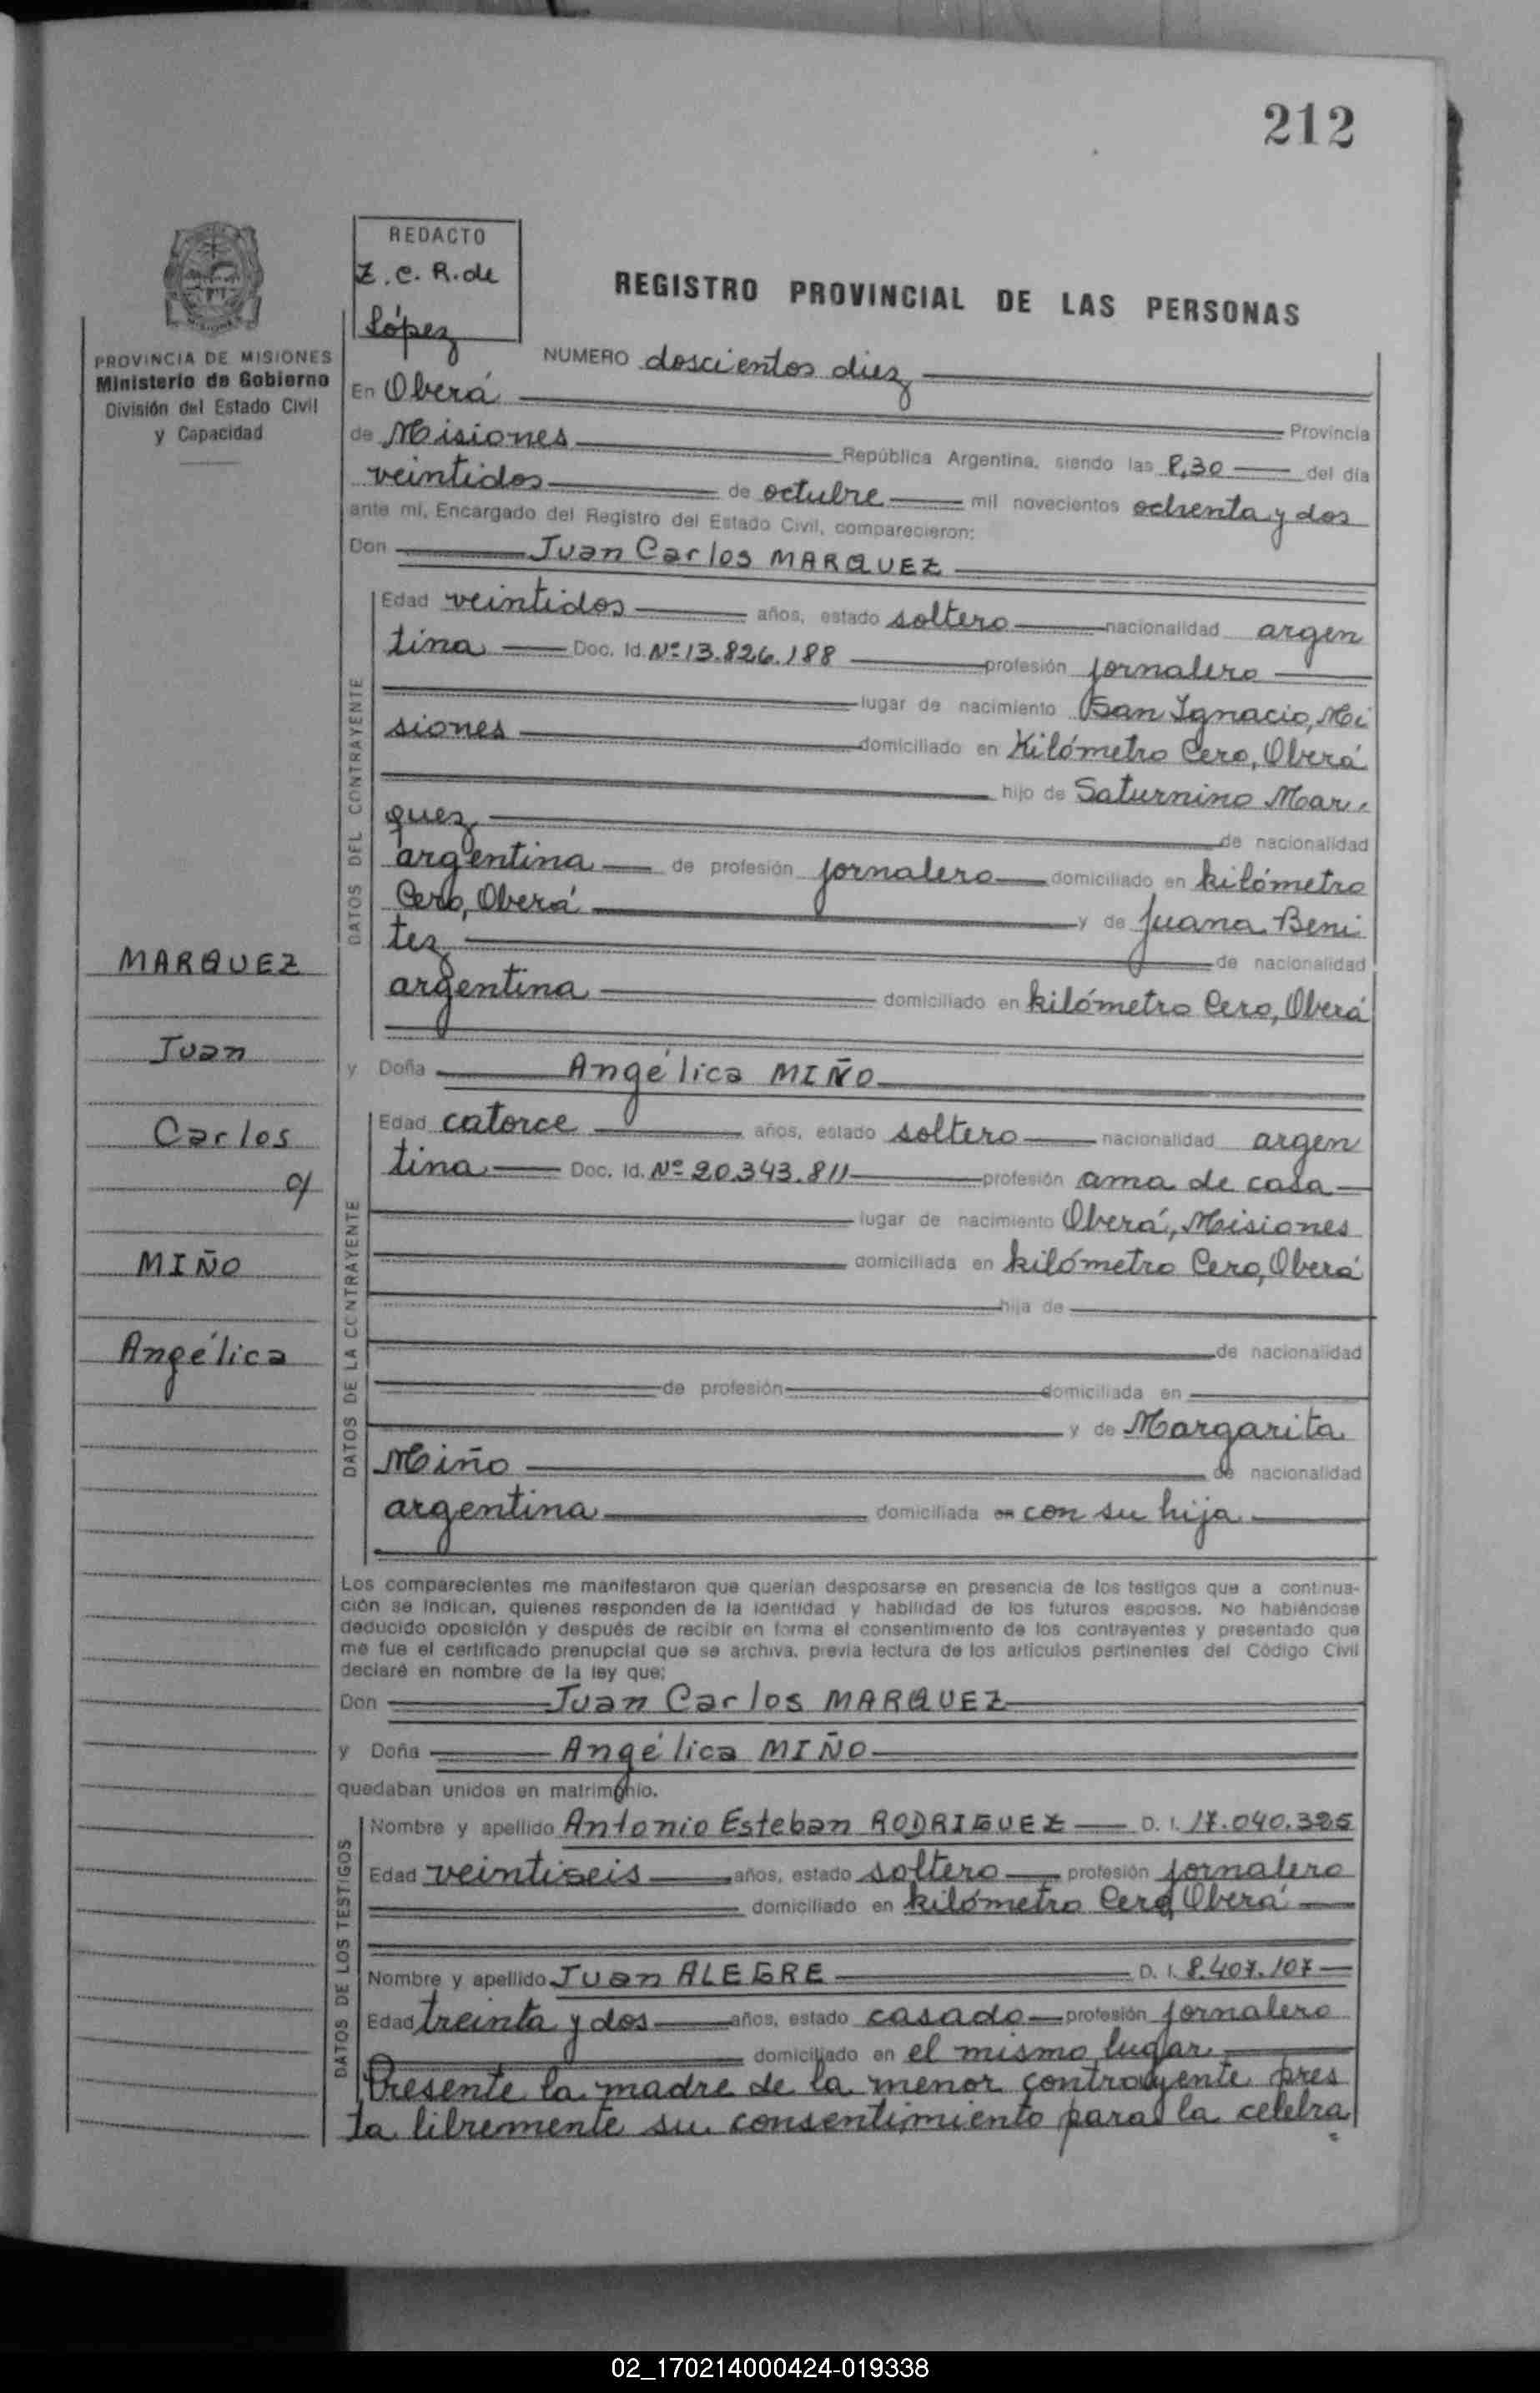 212
REDACTO
Z. C. R. de
López
REGISTRO PROVINCIAL DE LAS PERSONAS
PROVINCIA DE MISIONES
Ministerio de Gobierno
División del Estado Civil
y Capacidad
NUMERO doscientos diez
En Oberá
Provincia
de Misiones República Argentina, siendo las 8,30 del día
veintidos de octubre mil novecientos ochenta y dos
ante mí, Encargado del Registro del Estado Civil, comparecieron:
Don Juan Carlos MARQUEZ
DATOS DEL CONTRAYENTE
Edad veintidos años, estado soltero nacionalidad argen
tina Doc. Id. Nº 13.826.188 profesión jornalero
lugar de nacimiento San Ignacio, Mi
siones domiciliado en Kilómetro Cero, Oberá
hijo de Saturnino Mar
quez de nacionalidad
argentina de profesión jornalero domiciliado en kilómetro
Cero, Oberá y de Juana Beni
tez de nacionalidad
argentina domiciliado en kilómetro Cero, Oberá
y Doña Angélica MIÑO
DATOS DE LA CONTRAYENTE
Edad catorce años, estado soltero nacionalidad argen
tina Doc. Id. Nº 20.343.811 profesión ama de casa
lugar de nacimiento Oberá, Misiones
domiciliada en kilómetro Cero, Oberá
hija de
de nacionalidad
de profesión domiciliada en
y de Margarita
Miño de nacionalidad
argentina domiciliada en con su hija
MARQUEZ
Juan
Carlos
c/
MIÑO
Angélica
Los comparecientes me manifestaron que querían desposarse en presencia de los testigos que a continua-
ción se indican, quienes responden de la identidad y habilidad de los futuros esposos. No habiéndose
deducido oposición y después de recibir en forma el consentimiento de los contrayentes y presentado que
me fue el certificado prenupcial que se archiva, previa lectura de los artículos pertinentes del Código Civil
declaré en nombre de la ley que:
Don Juan Carlos MARQUEZ
y Doña Angélica MIÑO
quedaban unidos en matrimonio.
DATOS DE LOS TESTIGOS
Nombre y apellido Antonio Esteban RODRIGUEZ D. I. 17.040.325
Edad veintiseis años, estado soltero profesión jornalero
domiciliado en kilómetro Cero, Oberá
Nombre y apellido Juan ALEGRE D. I. 8.407.107
Edad treinta y dos años, estado casado profesión jornalero
domiciliado en el mismo lugar
Presente la madre de la menor contrayente pres
ta libremente su consentimiento para la celebra
02_170214000424-019338